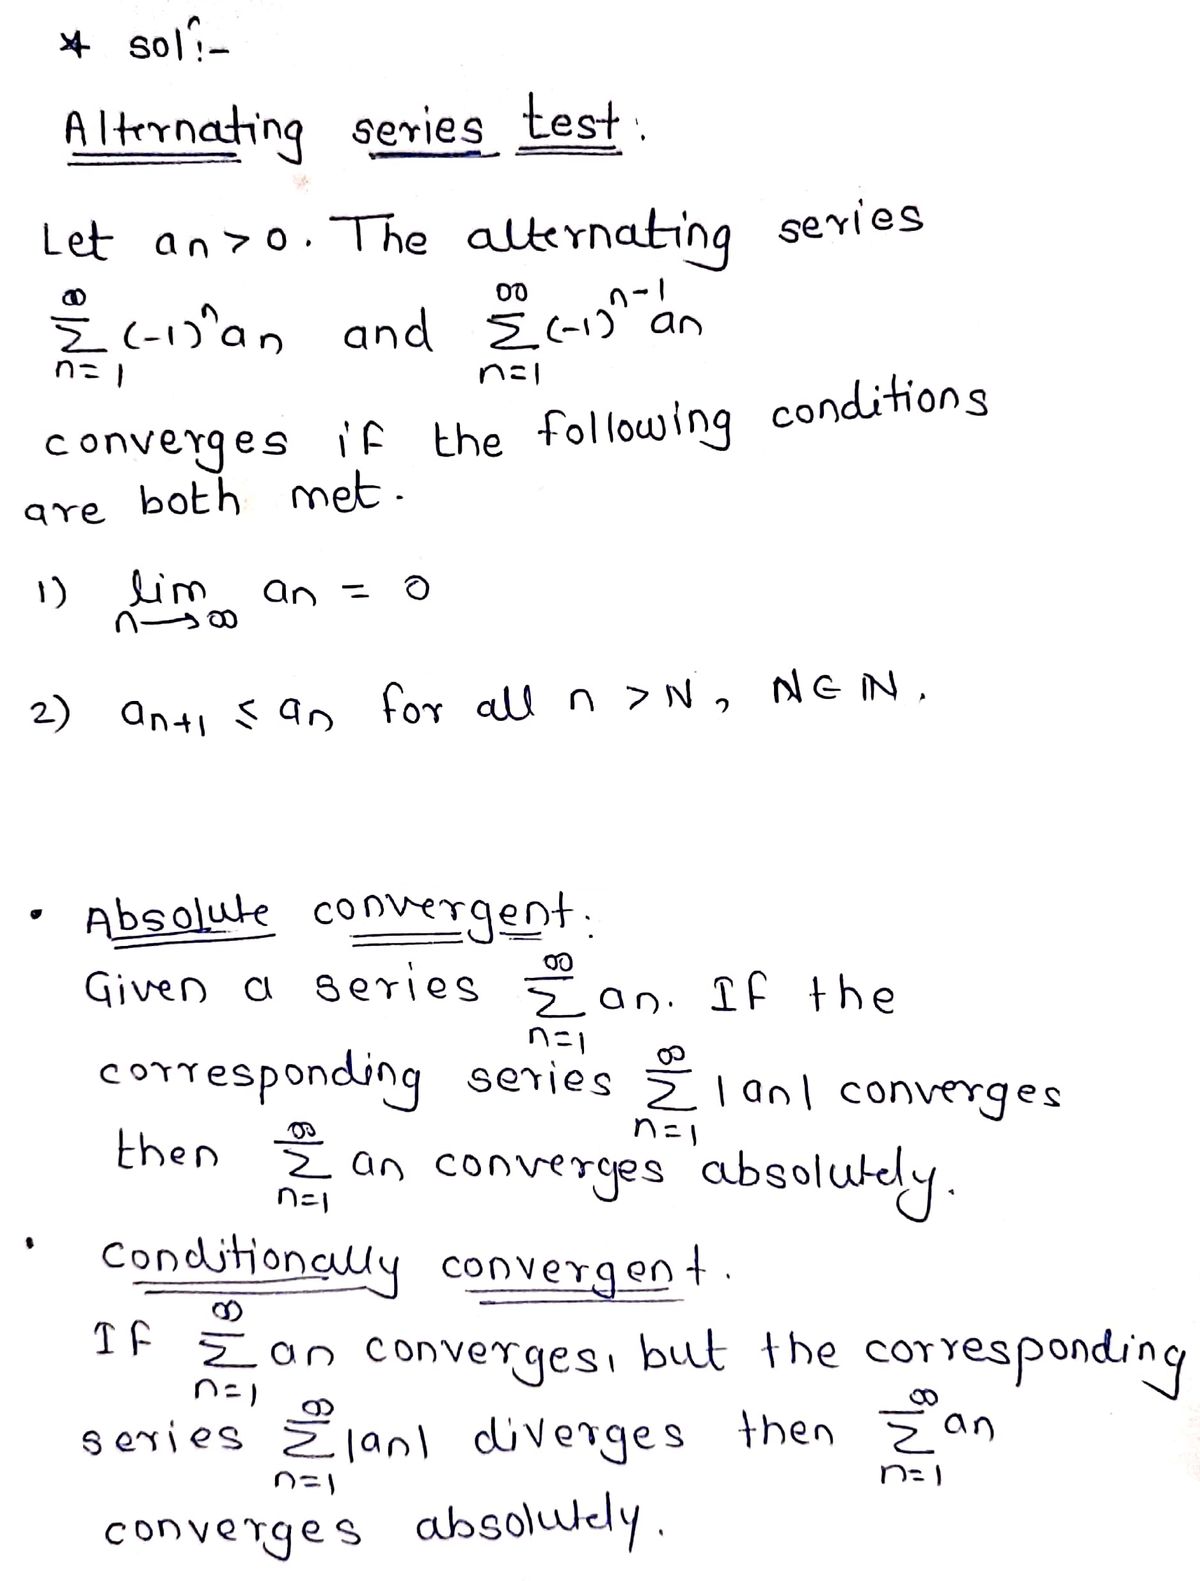 * solⁿ:-
Alternating series test:
Let an > 0. The alternating series
∞ Σ n=1 (-1)ⁿ an and ∞ Σ n=1 (-1)ⁿ⁻¹ an
converges if the following conditions
are both met.
1) lim n→∞ an = 0
2) an+1 ≤ an for all n > N, N ∈ ℕ.
• Absolute convergent:
Given a series ∞ Σ n=1 an. If the
corresponding series ∞ Σ n=1 |an| converges
then ∞ Σ n=1 an converges absolutely.
• Conditionally convergent.
If ∞ Σ n=1 an converges, but the corresponding
series ∞ Σ n=1 |an| diverges then ∞ Σ n=1 an
converges absolutely.